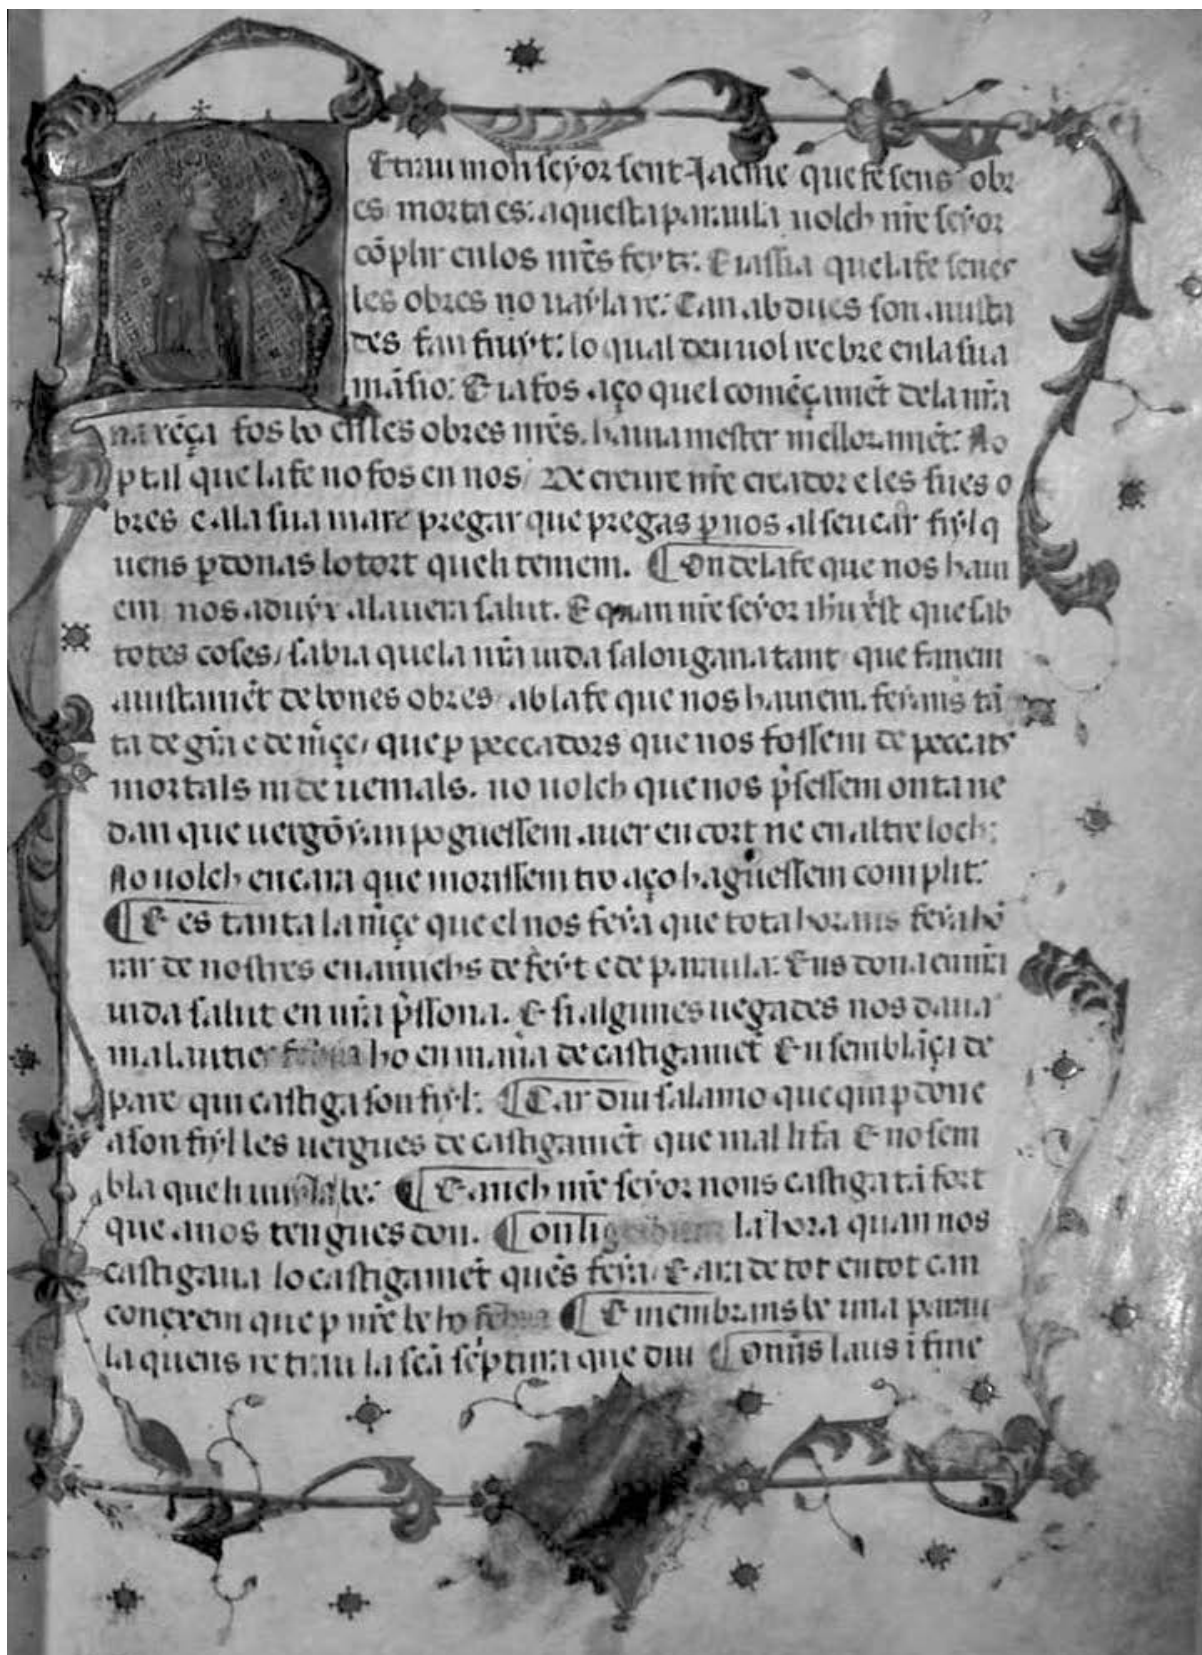 Retrau mon seyor sent Jacme que fe sens obr
es morta es: aquesta paraula uolch nr̃e seyor
cõplir en los nr̃es feyts: E ia sia que la fe senes
les obres no uayla re: Can abdues son aiusta
des fan fruyt: lo qual deu uol recebre en la sua
mãsio: E ia fos aço quel comẽçamẽt de la nr̃a
naxẽça fos bo en les obres nr̃es. hauia mester melloramẽt: No
ꝑ tal que la fe no fos en nos / De creure nr̃e creator e les sues o
bres e a la sua mare pregar que pregas ꝑ nos al seu car fiyl q
uens ꝑdonas lo tort queli teniem. ¶ On de la fe que nos hau
em nos aduyx a la uera salut. E quan nr̃e seyor ihũ xp̃st que sab
totes coses / sabia que la nr̃a uida salongaria tant que fariem
aiustamẽt de bones obres ab la fe que nos hauiem. feyans tã
ta de gr̃a e de mr̃çe / que ꝑ peccadors que nos fossem de peccats
mortals ni de uenials. no uolch que nos p̃sessem onta ne
dan que uergõyan poguessem auer en cort ne en altre loch:
No uolch encara que morissem tro aço haguessem complit:
¶ E es tanta la mr̃çe que el nos feya que tota hora ns feya ho
rar de nostres enamichs de feyt e de paraula: Ens dona en nr̃a
uida salut en nr̃a p̃ssona. E si algunes uegades nos daua
malauties fehia ho en manã de castigamẽt En semblãça de
pare qui castiga son fiyl: ¶ Car diu salamo que qui ꝑdone
a son fiyl les uergues de castigamẽt que mal li fa E no sem
bla queli uuyla be: ¶ E anch nr̃e seyor nons castiga tã fort
que a nos tengues don. ¶ On li la hora quan nos
castigaua lo castigamẽt quẽs feya / E ara de tot en tot can
conexem que ꝑ nr̃e be ho fehia ¶ E membrans be una parau
la quens retrau la sc̃a sc̃ptura que diu ¶ Om̃is laus ĩ fine